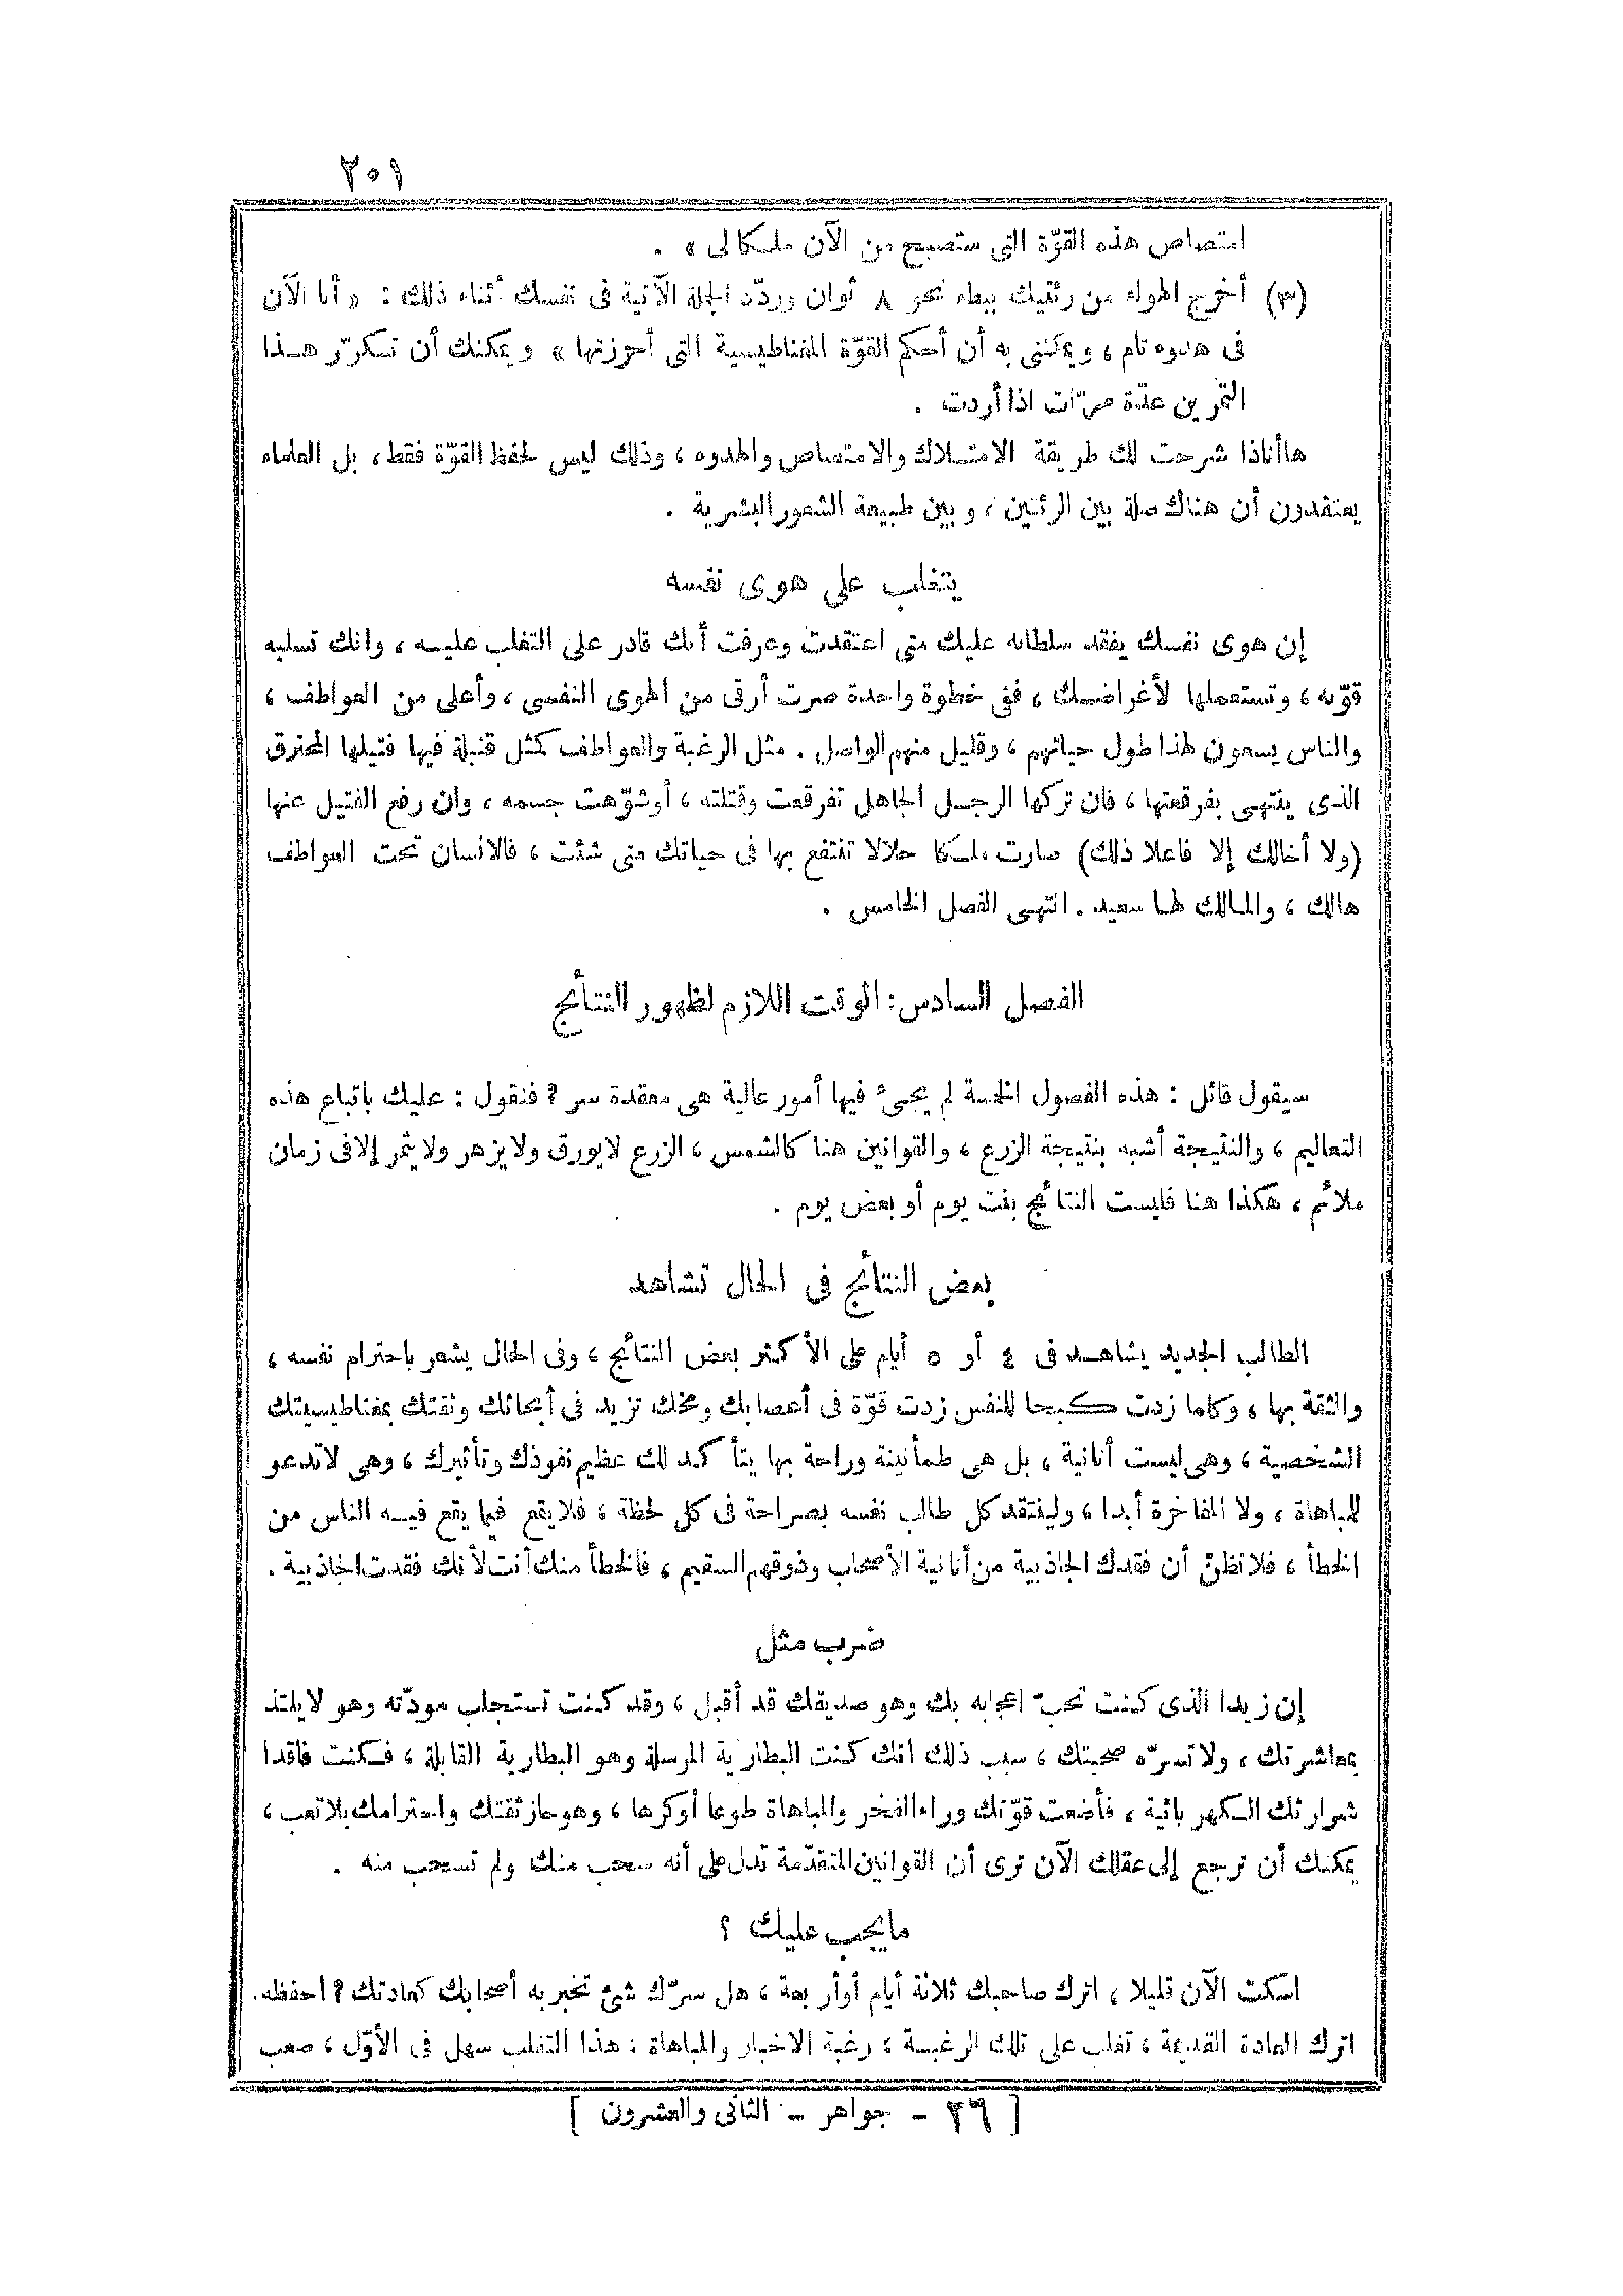 ٢٠١
امتصاص هذه القوّة التى ستصبح من الآن ملكا لى » .
(٣) أخرج الهواء من رئتيك ببطء نحو ٨ ثوان وردّد الجلة الآتية فى نفسك أثناء ذلك : « أنا الآن
فى هدوء تام ، ويمكننى به أن أحكم القوّة المغناطيسية التى أحرزتها » ويمكنك أن تكرّر هذا
التمرين عدّة مرّات اذا أردت .
هاأناذا شرحت لك طريقة الامتلاك والامتصاص والهدوء ، وذلك ليس لحفظ القوّة فقط ، بل العلماء
يعتقدون أن هناك صلة بين الرئتين ، وبين طبيعة الشعور البشرية .
يتغلب على هوى نفسه
إن هوى نفسك يفقد سلطانه عليك متى اعتقدت وعرفت أنك قادر على التغلب عليه ، وانك تسلبه
قوّته ، وتستعملها لأغراضك ، ففى خطوة واحدة صرت أرقى من الهوى النفسى ، وأعلى من العواطف ،
والناس يسعون لهذا طول حياتهم ، وقليل منهم الواصل . مثل الرغبة والعواطف كمثل قنبلة فيها فتيلها المحترق
الذى ينتهى بفرقعتها ، فان تركها الرجل الجاهل تفرقعت وقتلته ، أو شوّهت جسمه ، وان رفع الفتيل عنها
(ولا أخالك إلا فاعلا ذلك) صارت ملكا حلالا تنتفع بها فى حياتك متى شئت ، فالانسان تحت العواطف
هالك ، والمالك لها سعيد . انتهى الفصل الخامس .
الفصل السادس : الوقت اللازم لظهور النتائج
سيقول قائل : هذه الفصول الخمسة لم يجىء فيها أمور عالية هى معقدة سر ? فنقول : عليك باتباع هذه
التعاليم ، والنتيجة أشبه بنتيجة الزرع ، والقوانين هنا كالشمس ، الزرع لايورق ولايزهر ولايثمر إلا فى زمان
ملائم ، هكذا هنا فليست النتائج بنت يوم أو بعض يوم .
بعض النتائج فى الحال تشاهد
الطالب الجديد يشاهد فى ٤ أو ٥ أيام على الأكثر بعض النتائج ، وفى الحال يشعر باحترام نفسه ،
والثقة بها ، وكلما زدت كبحا للنفس زدت قوّة فى أعصابك ومخك تزيد فى أبحاثك وثقتك بمغناطيسيتك
الشخصية ، وهى ليست أنانية ، بل هى طمأنينة وراحة بها يتأكد لك عظيم نفوذك وتأثيرك ، وهى لاتدعو
للمباهاة ، ولا المفاخرة أبدا ، ولينتقد كل طالب نفسه بصراحة فى كل لحظة ، فلايقع فيما يقع فيه الناس من
الخطأ ، فلاتظنّ أن فقدك الجاذبية من أنانية الأصحاب وذوقهم السقيم ، فالخطأ منك أنت لأنك فقدت الجاذبية .
ضرب مثل
إن زيدا الذى كنت تحبّ اعجابه بك وهو صديقك قد أقبل ، وقد كنت تستجلب مودّته وهو لايلتذ
بمعاشرتك ، ولاتسرّه صحبتك ، سبب ذلك انك كنت البطارية المرسلة وهو البطارية القابلة ، فكنت فاقدا
شرارتك الكهربائية ، فأضعت قوّتك وراء الفخر والمباهاة طوعا أو كرها ، وهو حاز ثقتك واحترامك بلاتعب ،
يمكنك أن ترجع إلى عقلك الآن ترى أن القوانين المتقدّمة تدل على أنه سحب منك ولم تسحب منه .
مايجب عليك ؟
اسكت الآن قليلا ، اترك صاحبك ثلاثة أيام أو أربعة ، هل سرّك شىء تخبر به أصحابك كعادتك ? احفظه.
اترك العادة القديمة ، تغلب على تلك الرغبة ، رغبة الاخبار والمباهاة : هذا التغلب سهل فى الأوّل ، صعب
[ ٢٦ - جواهر - الثانى والعشرون ]